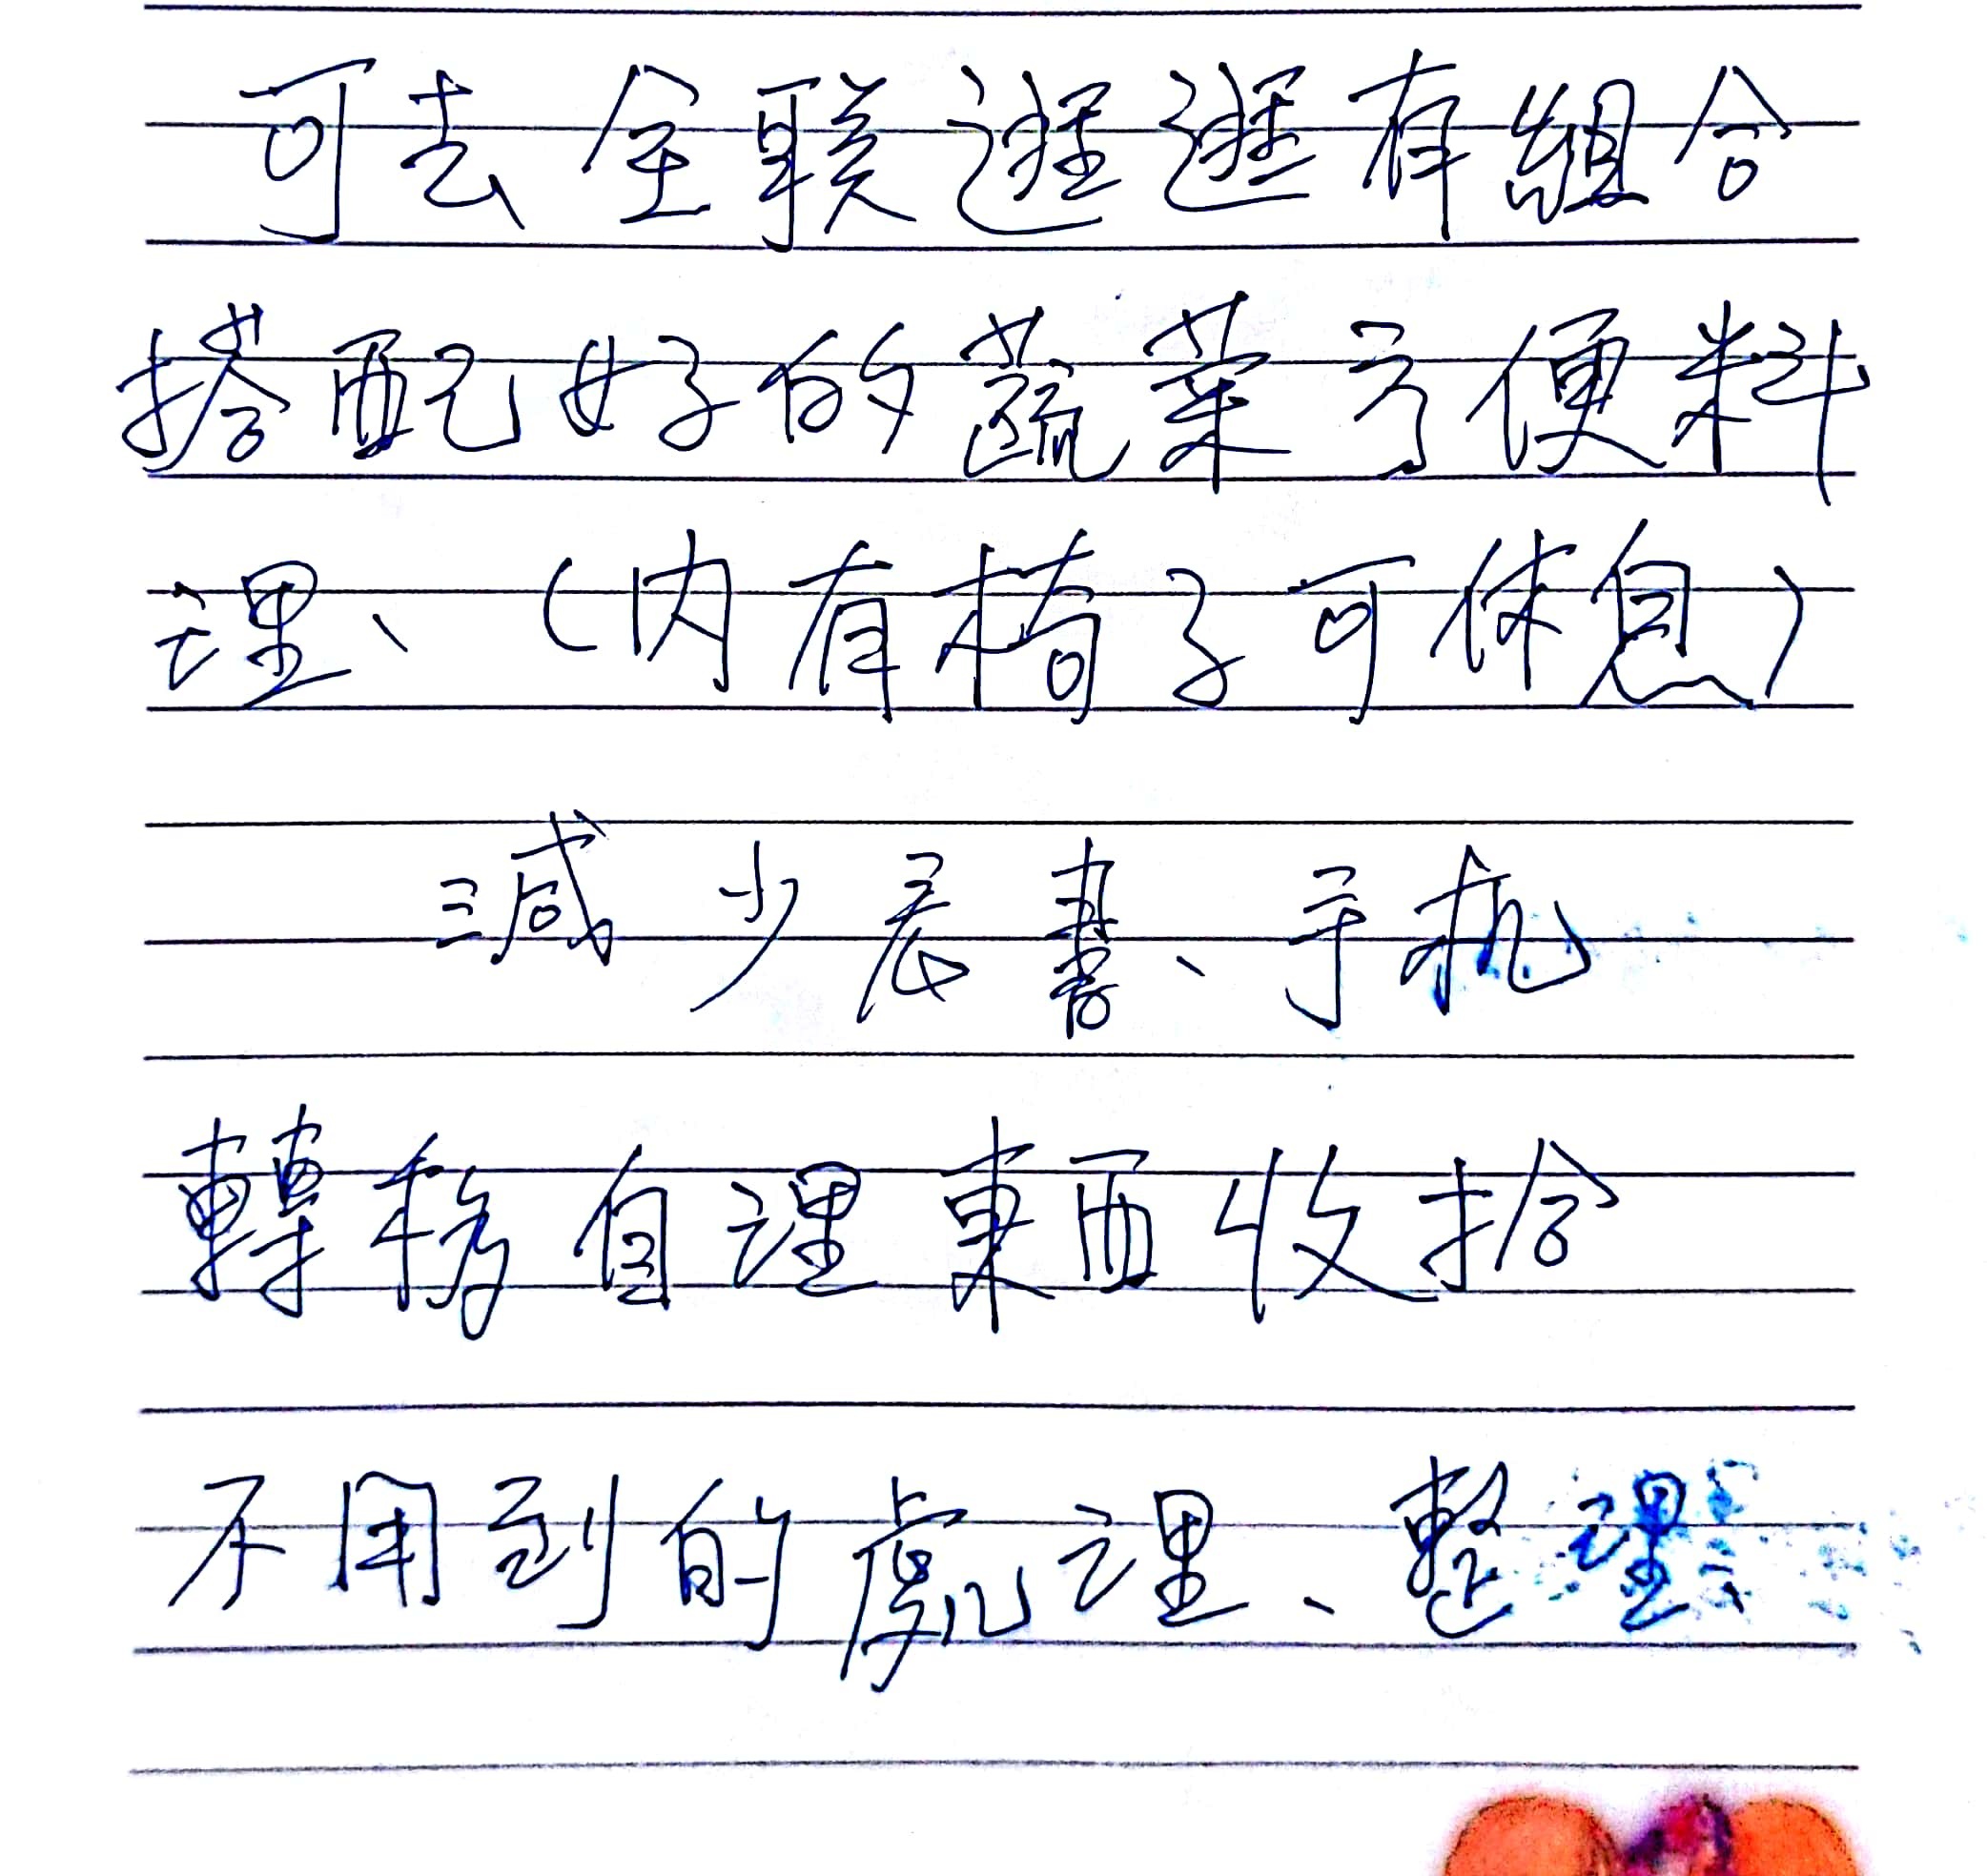 可去全联逛逛有組合
搭配好的蔬菜方便料
理、(內有椅子可休息)
減少看書、手机
轉移自理東西收拾
不用到的處理、整理